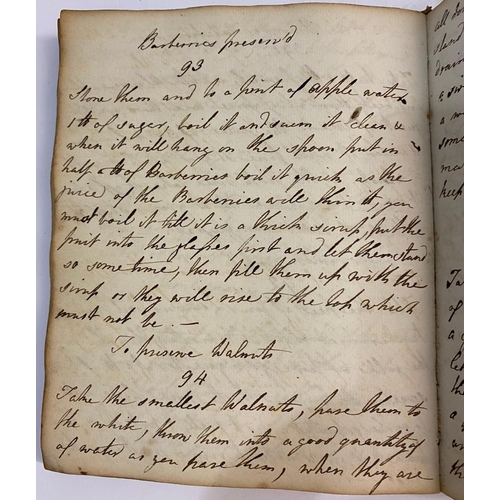 Barberries preserv'd
93
Stone them and to a pint of apple water
1 lb of sugar, boil it and scum it clean &
when it will hang on the spoon put in
half a lb of Barberries boil it quick as the
juice of the Barberries will thin it, you
must boil it till it is a thick sirup, put the
fruit into the glasses first and let them stand
so some time, then fill them up with the
sirup or they will rise to the top which
must not be. —
To preserve Walnuts
94
Take the smallest Walnuts, pare them to
the white, throw them into a good quantity of
of water as you pare them, when they are
all
stand
drain
a
a w
some
ma
keep
Ta
of
a g
let
th
a
an
th